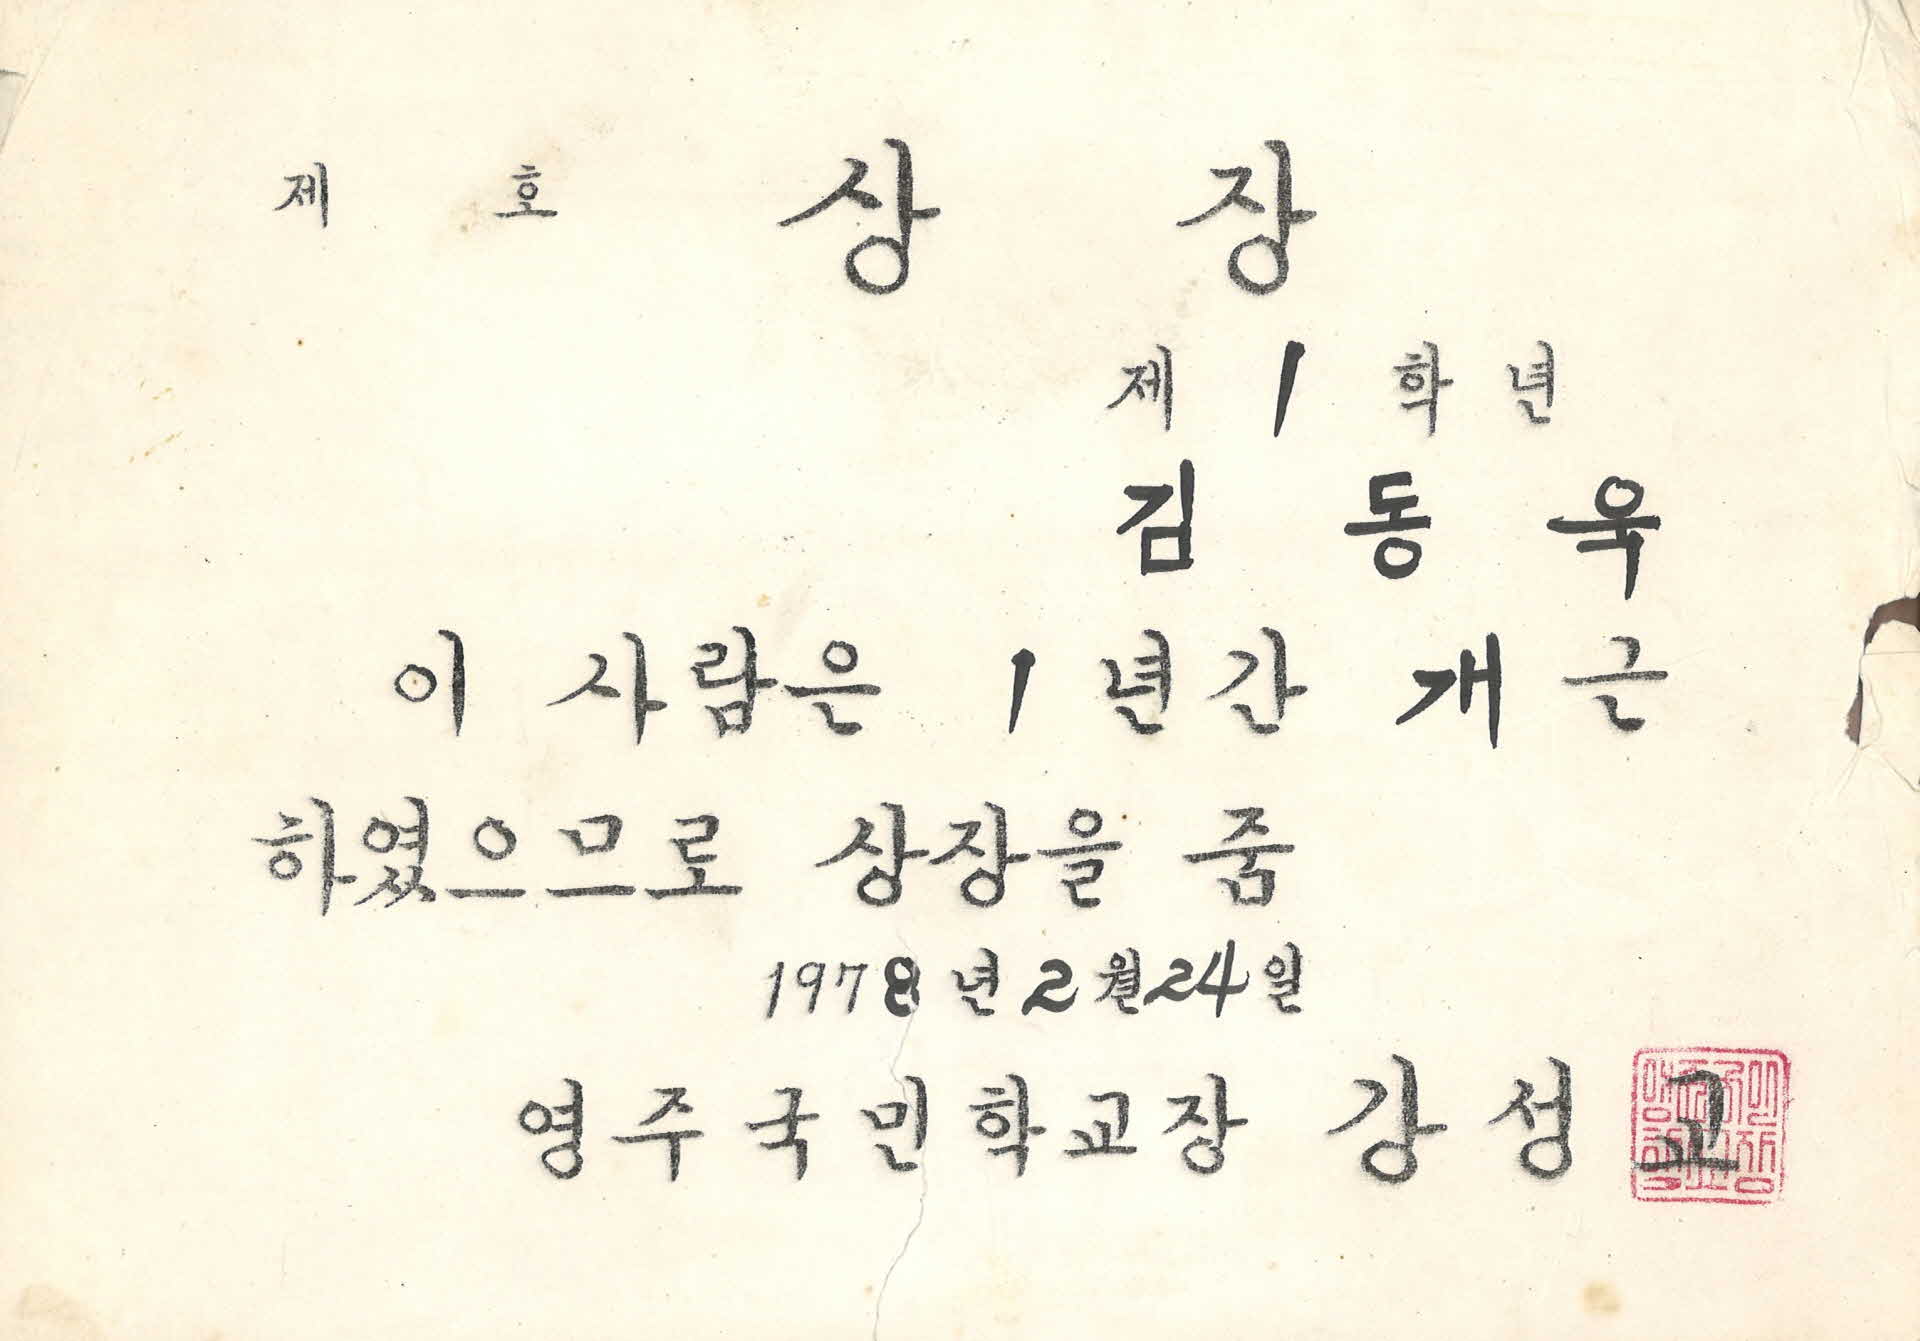 제 호 상 장
제 1 학 년
김 동 욱
이 사람은 1 년간 개 근
하였으므로 상장을 줌
1978년 2월 24일
영주국민학교장 강 성 고